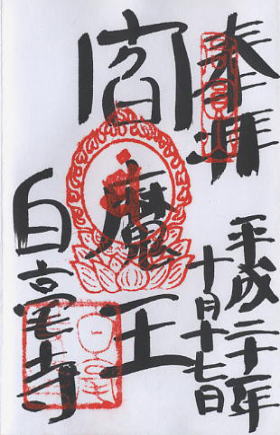 奉拝
平成二十一年
十月十七日
閻魔王
白毫寺